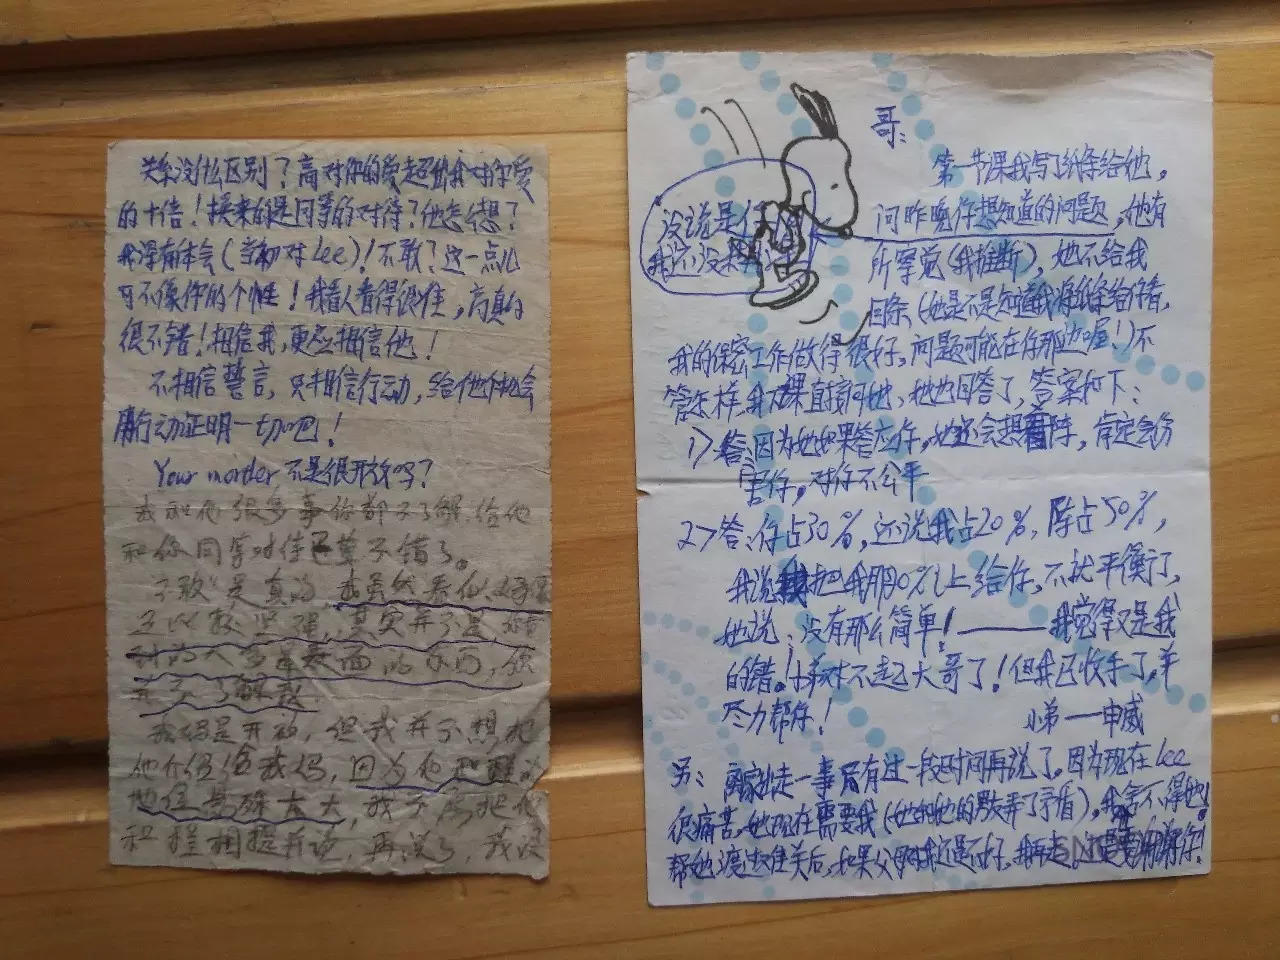 关系没什么区别？高对你的爱超出我对你爱
的十倍！换来的是同等的对待？他怎么想？
我深有体会（当初对Lee）！不敢？这一点儿
可不像你的个性！我看人看得很准，高真的
很不错！相信我，更应相信他！
不相信誓言，只相信行动，给他个机会
用行动证明一切吧！
Your morder 不是很开放吗？
我和他很多事你都不了解，给他
和你同等对待已算不错了。
不敢是真的，我虽然看似
其实并不是
的人多半是表面的东西，你
并不了解我
我妈是开放，但我并不想把
他介绍给我妈，因为他和
他悬殊太大，我不愿把他
和 相提并论，再说了，我没
哥：
没说是
我还没
第一节课我写了纸条给她，
问昨晚你想知道的问题，她有
所察觉（我推断），她不给我
回条（她是不是知道我将纸条给你看，
我的保密工作做得很好，问题可能在你那边喔！）不
管怎样，我下课直接问她，她也回答了，答案如下：
1〉答：因为她如果答应你，她还会想着陈，肯定会伤
害你，对你不公平
2〉答：你占30%，还说我占20%，陈占50%，
我说 把我那20%让给你，不就平衡了，
她说：没有那么简单！——我觉得又是我
的错。小弟对不起大哥了！但我已收手了，并
尽力帮你！
小弟——申威
另：离家出走一事只有过一段时间再说了。因为现在Lee
很痛苦，她现在需要我（她和她的 弄了矛盾），我舍不得她！
帮她渡过难关后，如果父母对我还是不好，我再走 谢谢你！